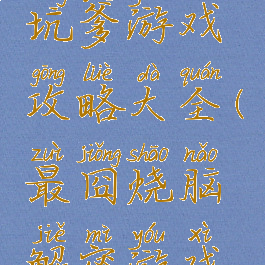 坑爹游戏
gōng lüè dà quán
攻略大全(
zuì jiǒng shāo nǎo
最囧烧脑
jiě mí yóu xì
解密游戏